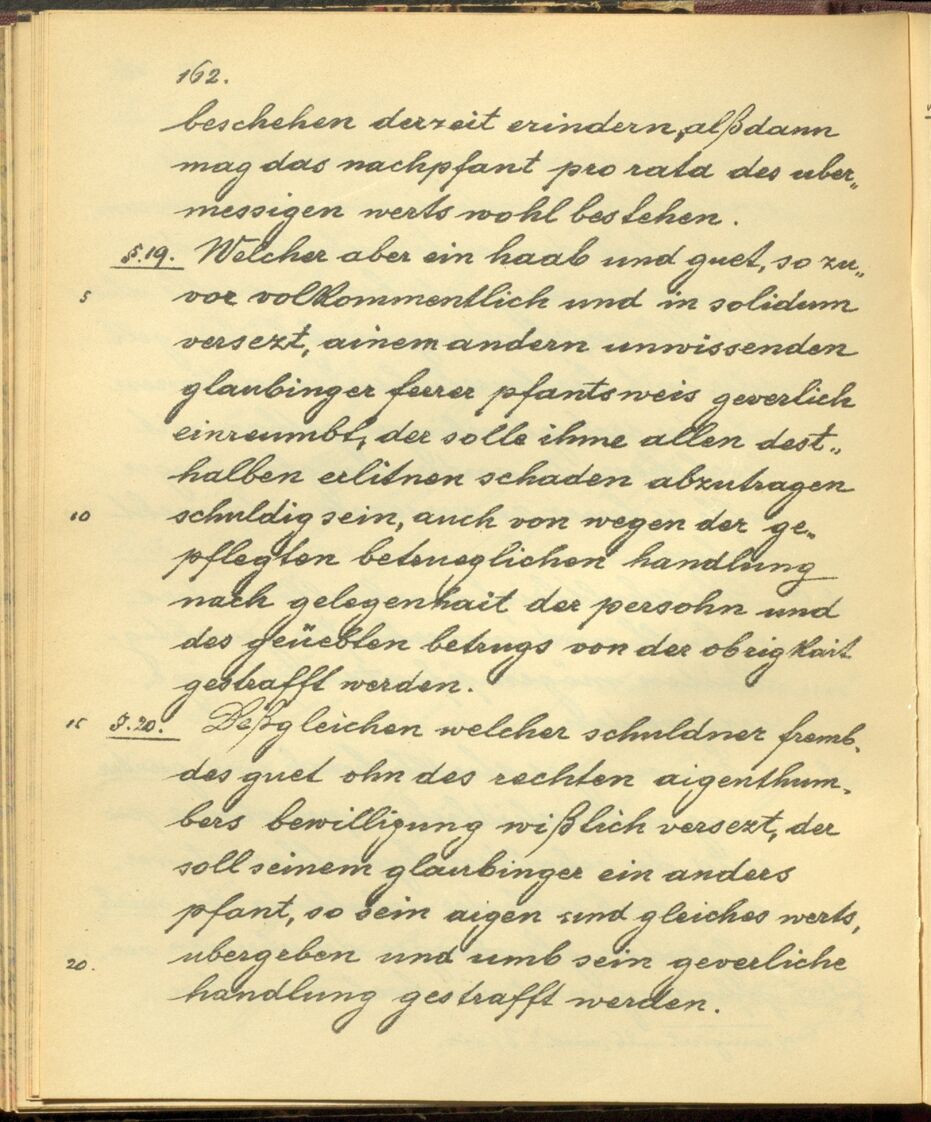 162.
beschehen derzeit erindern, alßdann
mag das nachpfant pro rata des uber„
messigen werts wohl bestehen.
§.19. Welcher aber ein haab und guet, so zu„
5 vor volkommentlich und in solidum
versezt, ainem andern unwissenden
glaubinger ferer pfantsweis geverlich
einreumbt, der solle ihme allen dest„
halben erlitnen schaden abzutragen
10 schuldig sein, auch von wegen der ge„
pflegten betrueglichen handlung
nach gelegenhait der persohn und
des geüebten betrugs von der obrigkait
gestrafft werden.
15 §.20. Deßgleichen welcher schuldner fremb„
des guet ohn des rechten aigenthum„
bers bewilligung wißlich versezt, der
soll seinem glaubinger ein anders
pfant, so sein aigen und gleiches werts,
20. ubergeben und umb sein geverliche
handlung gestrafft werden.